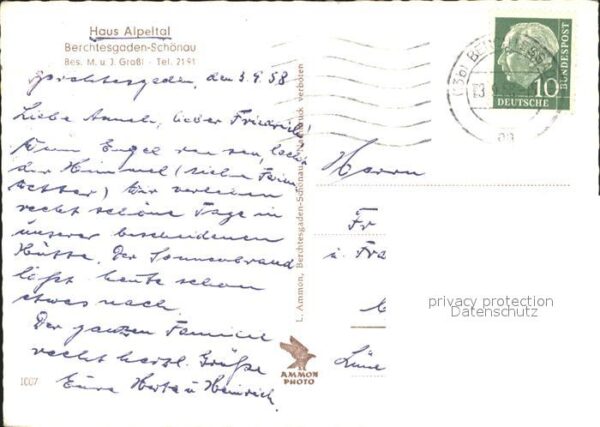 Haus Alpeltal
Berchtesgaden-Schönau
Bes. M. u. J. Graßl · Tel. 2191
Berchtesgaden, den 3.9.58
Liebe Anneh, lieber Friedrich!
Wenn Engel reisen, lacht
der Himmel (siehe Ferien
wetter) Wir verleben
recht schöne Tage in
unserer bescheidenen
Hütte. Der Sonnenbrand
läßt heute schon
etwas nach.
Der ganzen Familie
recht herzl. Grüße
Eure Herta u Heinrich.
1007
L. Ammon, Berchtesgaden-Schönau Nachdruck verboten
AMMON
PHOTO
10
DEUTSCHE
BUNDESPOST
Herrn
Fr
u. Fra
Lüne
privacy protection
Datenschutz